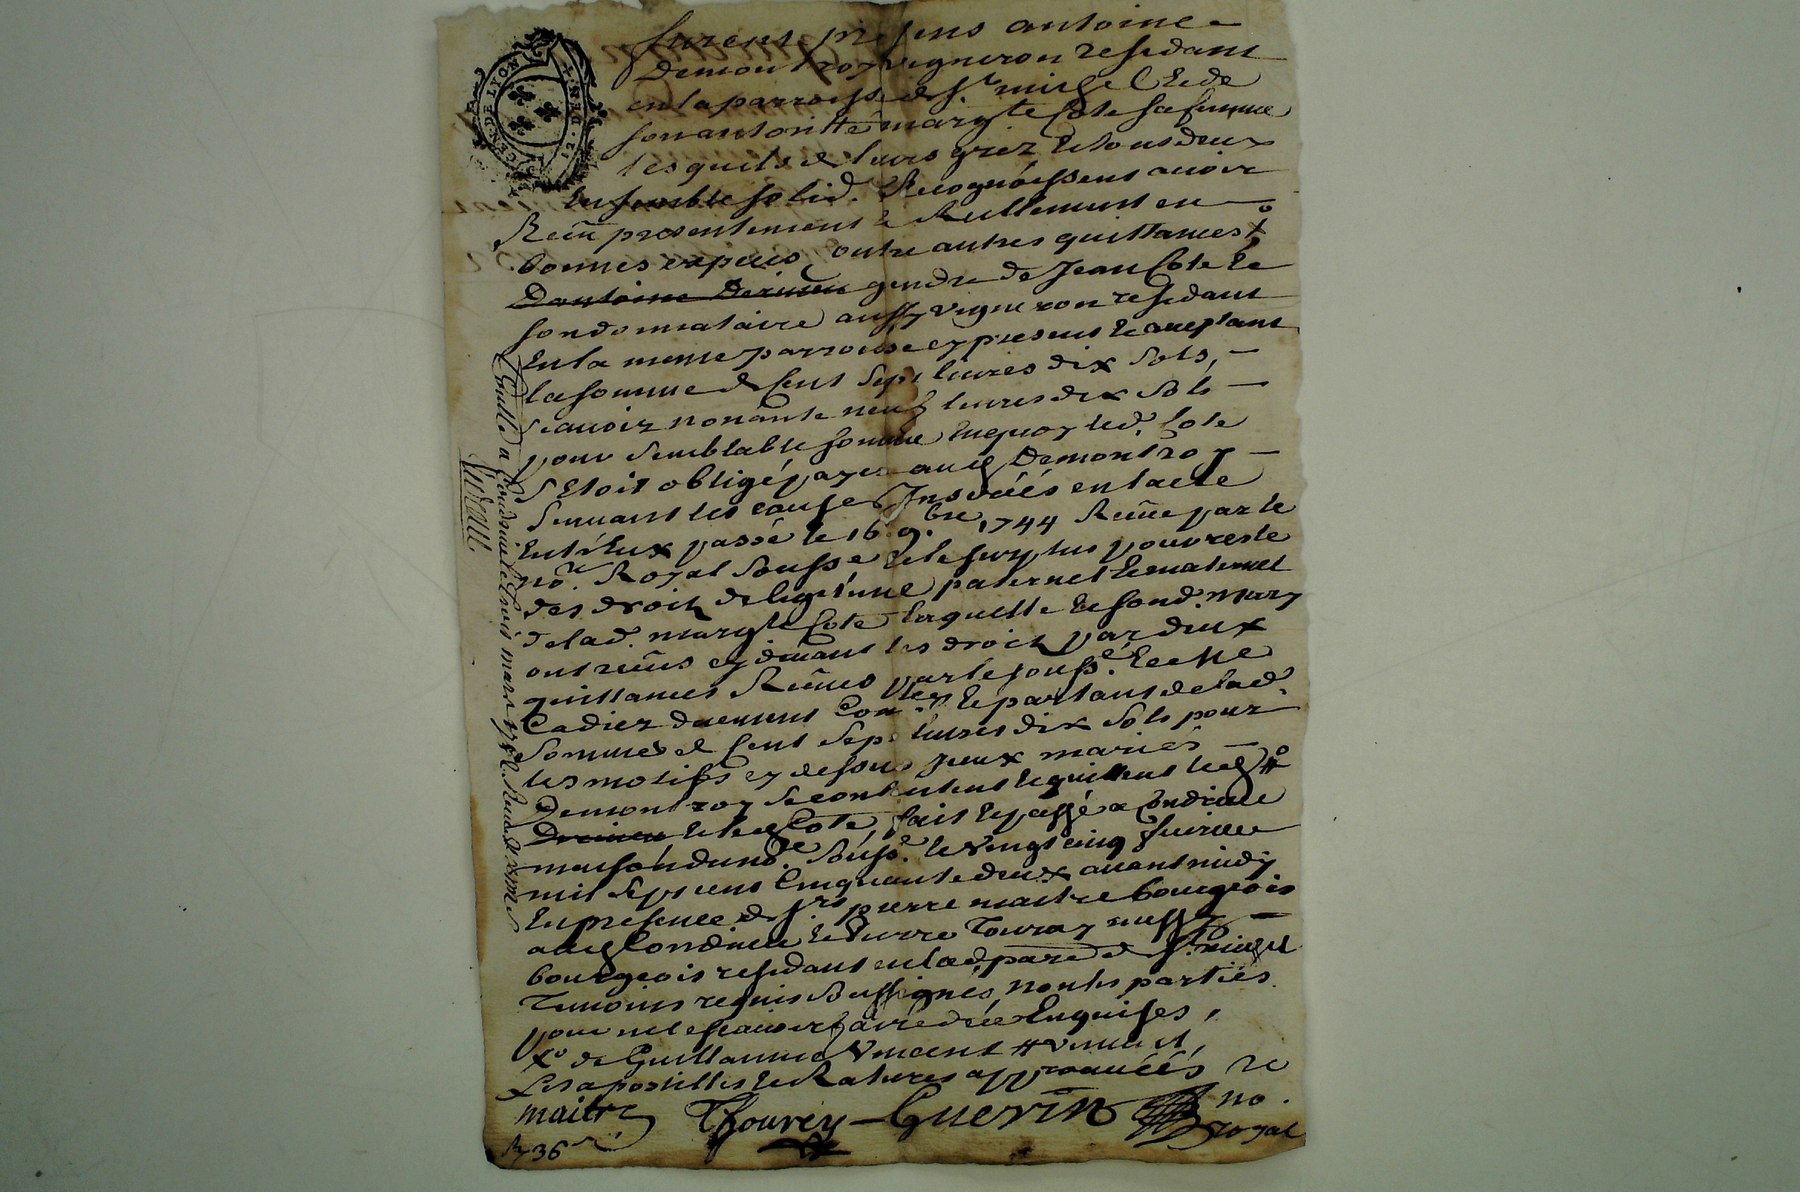 GEN. DE LYON
furent presens antoine
Demontroy vigneron residant
en la parroisse de St michel & de
son autoritté margte Cote sa femme
lesquels de leurs grez & tous deux
Ensemble solid. Recognoissent avoir
Reçu presentement & Reellement en
bonnes especes, outre autres quittances x°
D'antoine gendre de Jean Cote &
son donnataire aussy vigneron residant
En la meme parroisse cy present & aceptant
la somme de Cent Sept livres dix Sols,
Scavoir nonante neuf livres dix Sols
pour Semblable somme Enquoy led. Cote
S'Etoit obligé payer aud Demontroy
Suivant les causes Inserées en l'acte
Entr'Eux passé le 16 9.bre 1744 Reçue par le
nore. Royal Soussé & le surplus pour reste
des droits de legitime paternel & maternel
de lad. margte Cote laquelle & sond. mary
ont reçus cy devant les droits par deux
quittances Reçues par le souss.é & Me
Cadier duement & partant de lad.
Somme de Cent Sept livres dix Sols pour
les motifs cy dessus yceux mariés
Demontroy Se contentent & quittent led #°
& led Cote, fait & passé a Condrieu
maison dud. no.re Souss.é le Vingt cinq fevrier
mil Sept cent Cinquante deux avant midy
En presence de sr pierre maitre bourgeois
aud Condrieu & Pierre Tourey aussy
bourgeois residant en lad parr. de St. michel
Temoins requis Soussignés, non les parties
pour ne le scavoir faire de ce Enquises,
x° de Guillaume Vincent # Vincent,
Les apostilles & Ratures approuvéés
maitre Thourey Guerin no.
royal
R 36